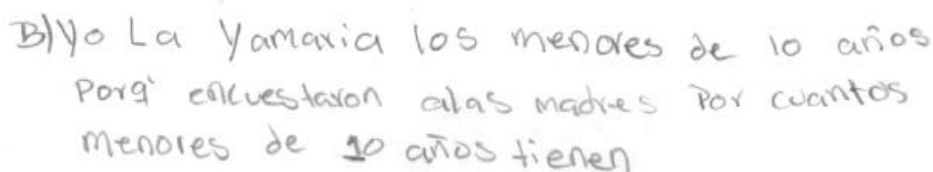 B) Yo La Yamaria los menores de 10 años
Porq' encuestaron alas madres Por cuantos
menores de 10 años tienen